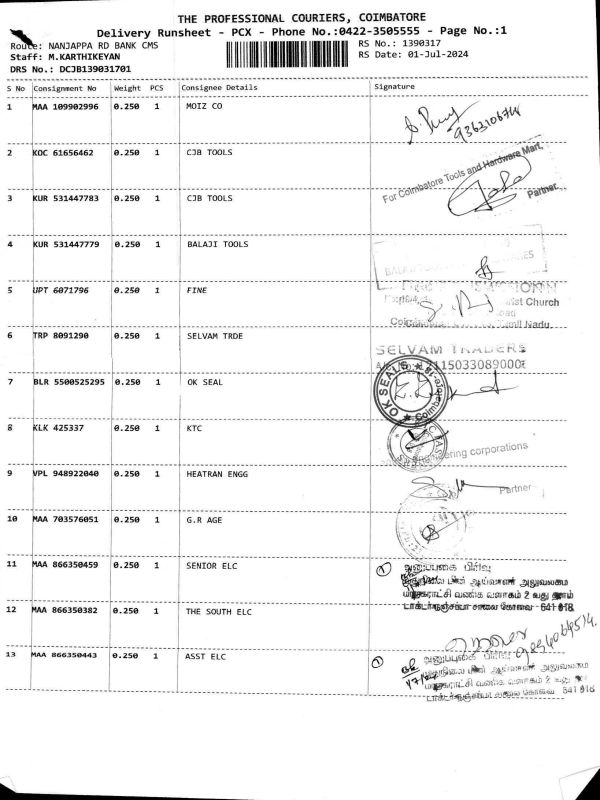 THE PROFESSIONAL COURIERS, COIMBATORE
Delivery Runsheet - PCX - Phone No.:0422-3505555 - Page No.:1
Route: NANJAPPA RD BANK CMS
RS No.: 1390317
Staff: M.KARTHIKEYAN
RS Date: 01-Jul-2024
DRS No.: DCJB139031701
S No Consignment No Weight PCS Consignee Details Signature
1 MAA 109902996 0.250 1 MOIZ CO
2 KOC 61656462 0.250 1 CJB TOOLS
For Coimbatore Tools and Hardware Mart,
Partner
3 KUR 531447783 0.250 1 CJB TOOLS
4 KUR 531447779 0.250 1 BALAJI TOOLS
5 UPT 6071796 0.250 1 FINE
Church
Tamil Nadu
6 TRP 8091290 0.250 1 SELVAM TRDE
SELVAM TRADERS
15033089000
7 BLR 5500525295 0.250 1 OK SEAL
OK SEALS
8 KLK 425337 0.250 1 KTC
corporations
9 VPL 948922040 0.250 1 HEATRAN ENGG
Partner
10 MAA 703576051 0.250 1 G.R AGE
11 MAA 866350459 0.250 1 SENIOR ELC
1
பிரிவு
அலுவலகம்
வணிக வளாகம் 2 வது தளம்
சாலை கோவை - 641 018
12 MAA 866350382 0.250 1 THE SOUTH ELC
13 MAA 866350443 0.250 1 ASST ELC
1
பிரிவு
வணிக வளாகம் 2
கோவை 641 018